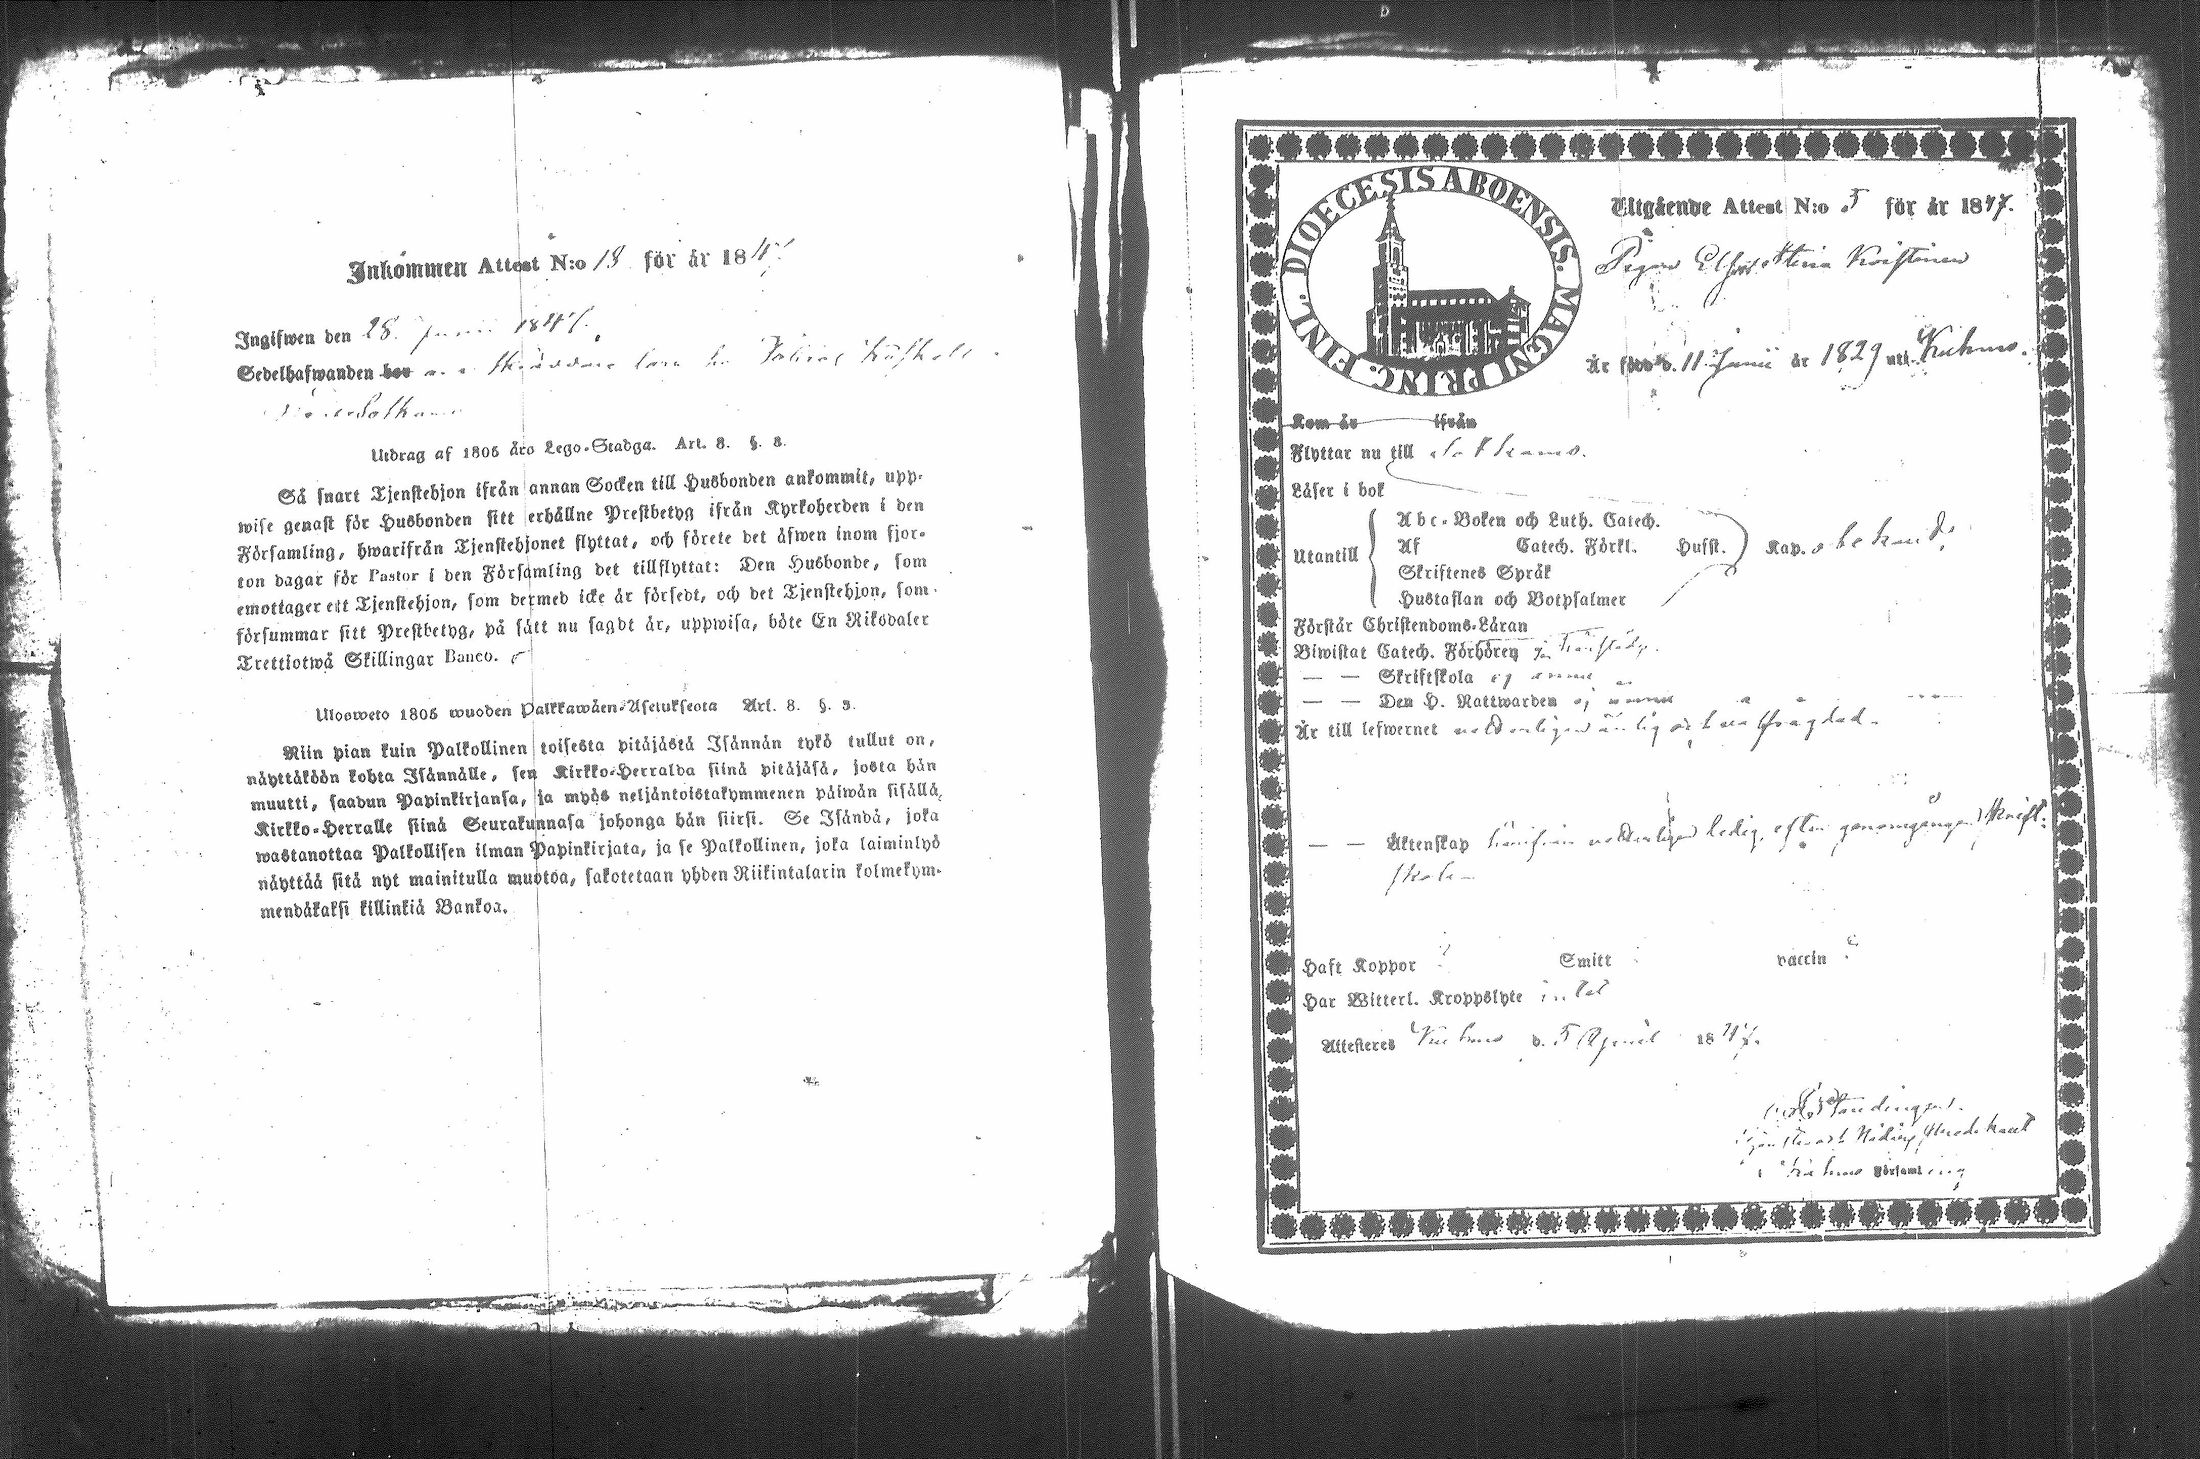 Inkommen Attest N:o 18 för år 1847.
Ingifwen den 28. Junii 1847.
Sedelhafwanden hos
Sotkamo
Utdrag af 1805 års Lego-Stadga. Art. 8. §. 3.
Så snart Tjenstehjon ifrån annan Socken till Husbonden ankommit, upp-
wise genast för Husbonden sitt erhållne Prestbetyg ifrån Kyrkoherden i den
Församling, hwarifrån Tjenstehjonet flyttat, och förete det äfwen inom fjor-
ton dagar för Pastor i den Församling det tillflyttat: Den Husbonde, som
emottager ett Tjenstehjon, som dermed icke är försedt, och det Tjenstehjon, som
försummar sitt Prestbetyg, på sätt nu sagdt är, uppwisa, böte En Riksdaler
Trettiotwå Skillingar Banco.
Ulosweto 1805 wuoden Palkkawäen-Asetuksesta Art. 8. §. 3.
Niin pian kuin Palkollinen toisesta pitäjästä Isännän tykö tullut on,
näyttäköön kohta Isännälle, sen Kirkko-Herralda siinä pitäjäsä, josta hän
muutti, saadun Papinkirjansa, ja myös neljäntoistakymmenen päiwän sisällä,
Kirkko-Herralle siinä Seurakunnasa johonga hän siirsi. Se Isändä, joka
wastanottaa Palkollisen ilman Papinkirjata, ja se Palkollinen, joka laiminlyö
näyttää sitä nyt mainitulla muotoa, sakotetaan yhden Riikintalarin kolmekym-
mendäkaksi killinkiä Bankoa.
DIOECESIS ABOENSIS. MAGNI PRINC. FINL.
Utgående Attest N:o 5 för år 1847.
Pigan Stina Koistinen
Är född d. 11 Junii år 1829 uti Kuhmo.
Kom år ifrån
Flyttar nu till Sotkamo.
Läser i bok
Utantill
Abc-Boken och Luth. Catech.
Af Catech. Förkl. Husst. Kap. obekant.
Skriftenes Språk
Hustaflan och Botpsalmer
Förstår Christendoms-Läran
Biwistat Catech. Förhören
— — Skriftskola ej ännu
— — Den H. Nattwarden ej ännu
Är till lefwernet wetterligen ärlig och wälfrägdad.
— — Äktenskap härifrån wetterligen ledig, efter genomgången Skrift-
skola
Haft Koppor ? Smitt vaccin ?
Har Witterl. Kroppslyte intet
Attesteras Kuhmo d. 5 April 1847.
Kuhmo Församling